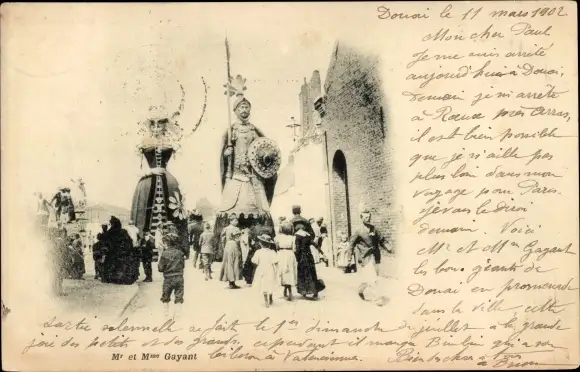 Douai le 11 mars 1902
Mon cher Paul
Je me suis arrêté
aujourd'hui à Douai,
demain je m'arrête
à Rœux près Arras,
il est bien possible
que je n'aille pas
plus loin dans mon
voyage pour Paris.
je vous le dirai
demain. Voici
Mr et Mme Gayant
les bons géants de
Douai en promenade
dans la ville cette
sortie solennelle se fait le 1er dimanche de juillet à la grande
joie des petits et des grands, cependant il manque Binbin qui a son
à Valenciennes.
Mr et Mme Gayant